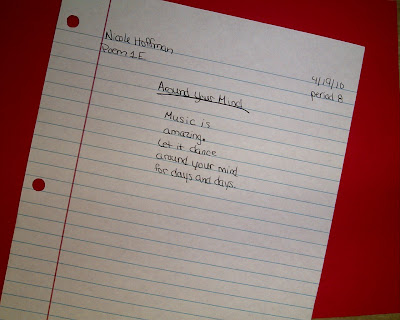 Nicole Hoffman
Poem 1E
4/19/10
period 8
Around Your Mind
Music is
amazing.
Let it dance
around your mind
for days and days.